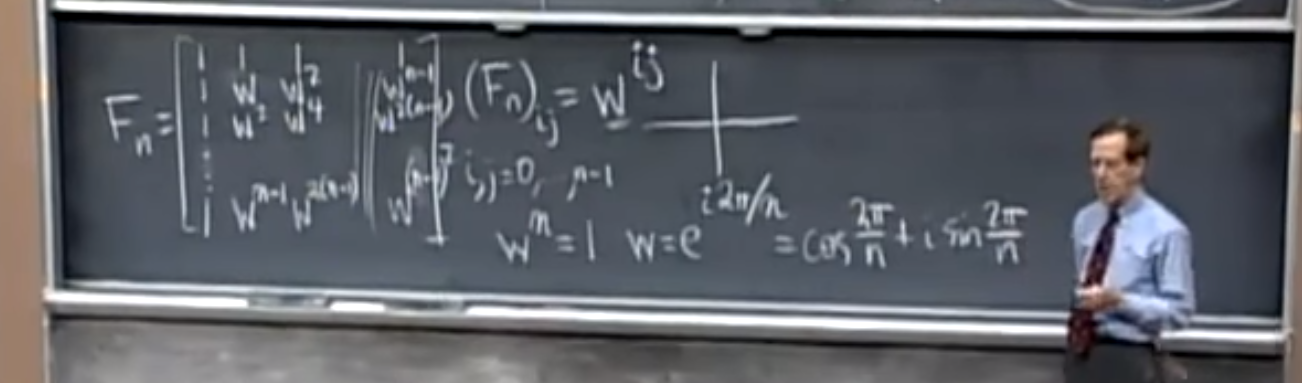 F_n = [ 1 1 1 1
1 w w^2 w^{n-1}
1 w^2 w^4 w^{2(n-1)}
⋮
1 w^{n-1} w^{2(n-1)} w^{(n-1)^2} ]
(F_n)_{ij} = w^{ij}
i,j=0, ,n-1
w^n = 1 w = e^{i2π/n} = cos 2π/n + i sin 2π/n